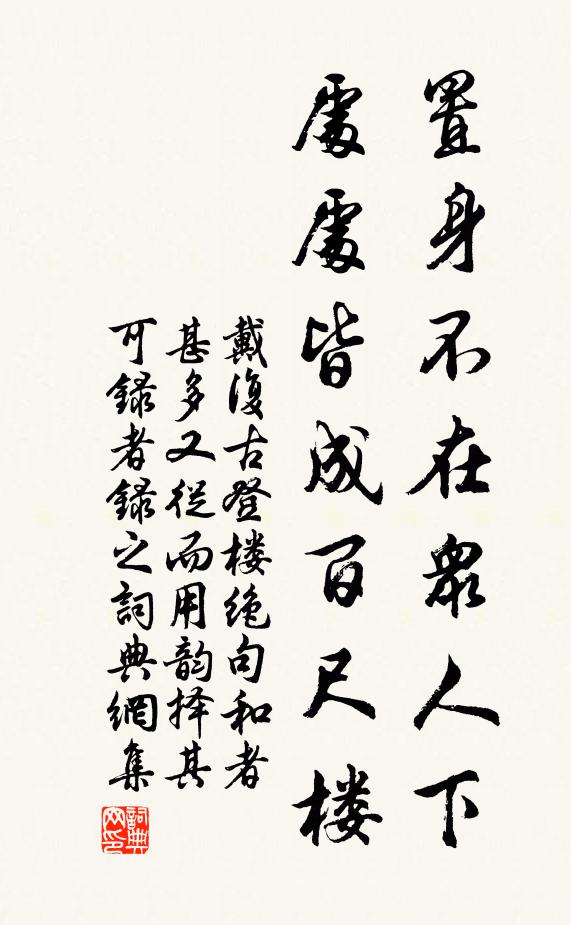 置身不在眾人下
處處皆成百尺楼
戴復古登楼绝句和者
甚多又從而用韵择其
可録者録之詞典網集
詞典
网印